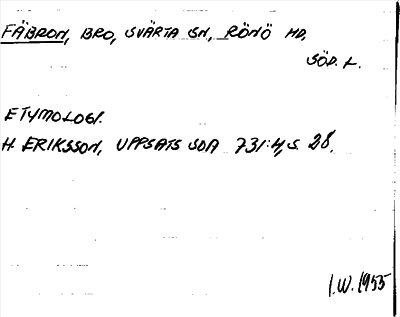 FÄBRON, BRO, SVÄRTA SN., RÖNÖ HD,
SÖD. L.
ETYMOLOGI.
H. ERIKSSON, UPPSATS SOA 731:4, S. 28.
I.W. 1955